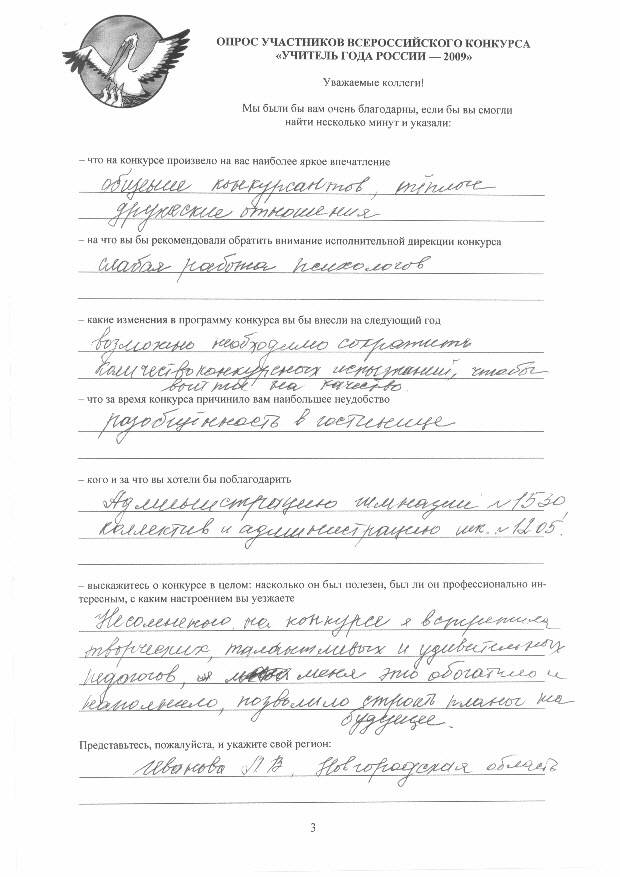 ОПРОС УЧАСТНИКОВ ВСЕРОССИЙСКОГО КОНКУРСА
«УЧИТЕЛЬ ГОДА РОССИИ — 2009»
Уважаемые коллеги!
Мы были бы вам очень благодарны, если бы вы смогли
найти несколько минут и указали:
– что на конкурсе произвело на вас наиболее яркое впечатление
общение конкурсантов, тёплые
дружеские отношения
– на что вы бы рекомендовали обратить внимание исполнительной дирекции конкурса
слабая работа психологов
– какие изменения в программу конкурса вы бы внесли на следующий год
возможно необходимо сократить
количество конкурсных испытаний, чтобы
выйти на качество
– что за время конкурса причинило вам наибольшее неудобство
разобщённость в гостинице
– кого и за что вы хотели бы поблагодарить
Администрацию гимназии №1530,
коллектив и администрацию шк. №1205!
– выскажитесь о конкурсе в целом: насколько он был полезен, был ли он профессионально ин-
тересным, с каким настроением вы уезжаете
на конкурсе я встретила
творческих, талантливых и удивительных
педагогов, меня это обогатило и
наполнило, позволило строить планы на
будущее.
Представьтесь, пожалуйста, и укажите свой регион:
Иванова Новгородская область
3